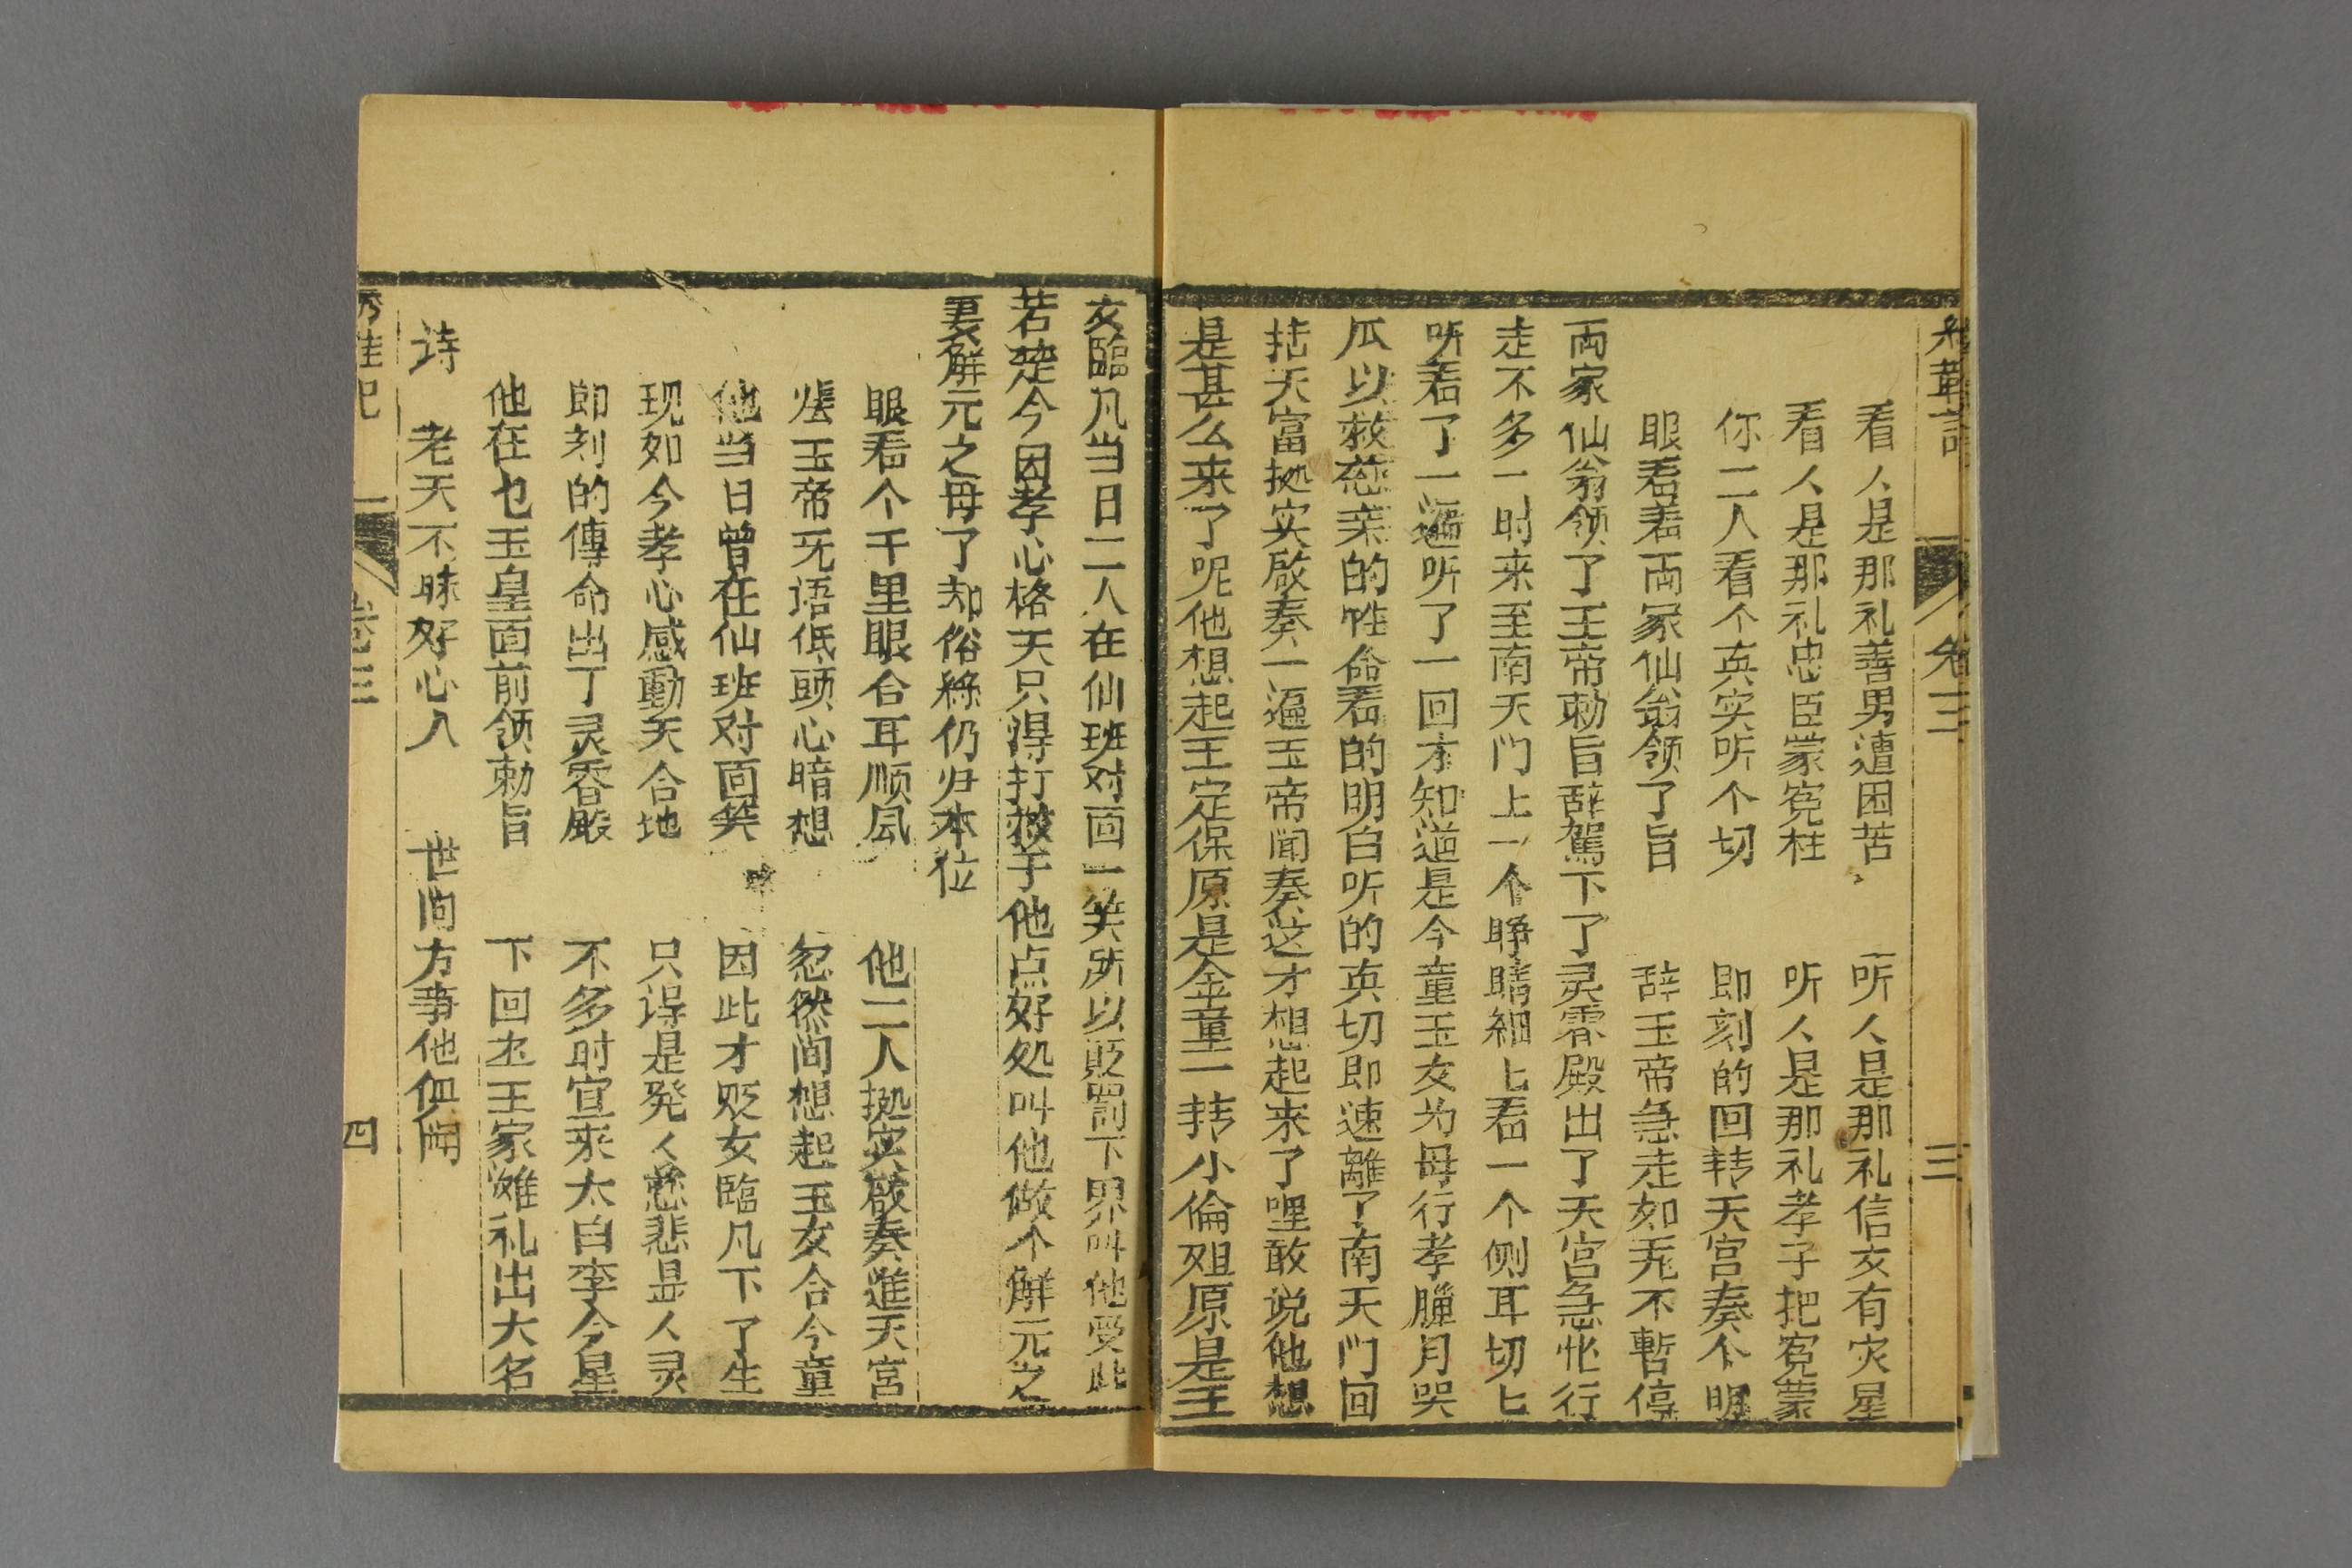 卷三
三
看人是那礼善男遭困苦 听人是那礼信女有灾星
看人是那礼忠臣蒙冤枉 听人是那礼孝子把冤蒙
你二人看个真实听个切 即刻的回转天宫奏个明
眼看着両家仙翁领了旨 辞玉帝急走如飛不暫停
両家仙翁领了玉帝勅旨辞駕下了灵霄殿出了天宫急忙行
走不多一时来至南天门上一个睁睛細匕看一个侧耳切匕
听看了一遍听了一回才知道是今童玉女为母行孝臘月哭
瓜以救慈亲的性命看的明白听的真切即速離了南天门回
拮天富拠实啟奏一遍玉帝闻奏这才想起来了哩敢说他想
是甚么来了呢他想起王定保原是金童一転小倫姐原是玉
女臨凡当日二人在仙班对面一笑所以貶罰下界叫他受此
若楚今因孝心格天只得打救于他点好处叫他做个解元之
妻解元之母了却俗緣仍归本位
眼看个千里眼合耳顺風 他二人拠实啟奏進天宫
张玉帝無语低頭心暗想 忽然间想起玉女合今童
他当日曾在仙班对面笑 因此才贬女臨凡下了生
现如今孝心感動天合地 只得是発人慈悲显人灵
即刻的傳命出了灵霄殿 不多时宣來太白李今星
他在也玉皇面前领勅旨 下回在王家滩礼出大名
诗 老天不昧好心人 世间方事他俱闻
卷三
四